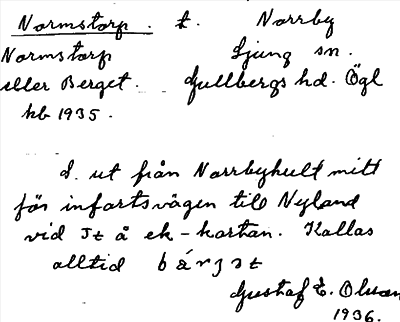 Normstorp. t. Norrby
Normstorp Ljung sn.
eller Berget. Gullbergs hd. Ögl
kb 1935.
d. ut från Norrbyhult mitt
för infartsvägen till Nyland
vid It å ek-kartan. Kallas
alltid bárʒət
Gustaf E. Olsson
1936.